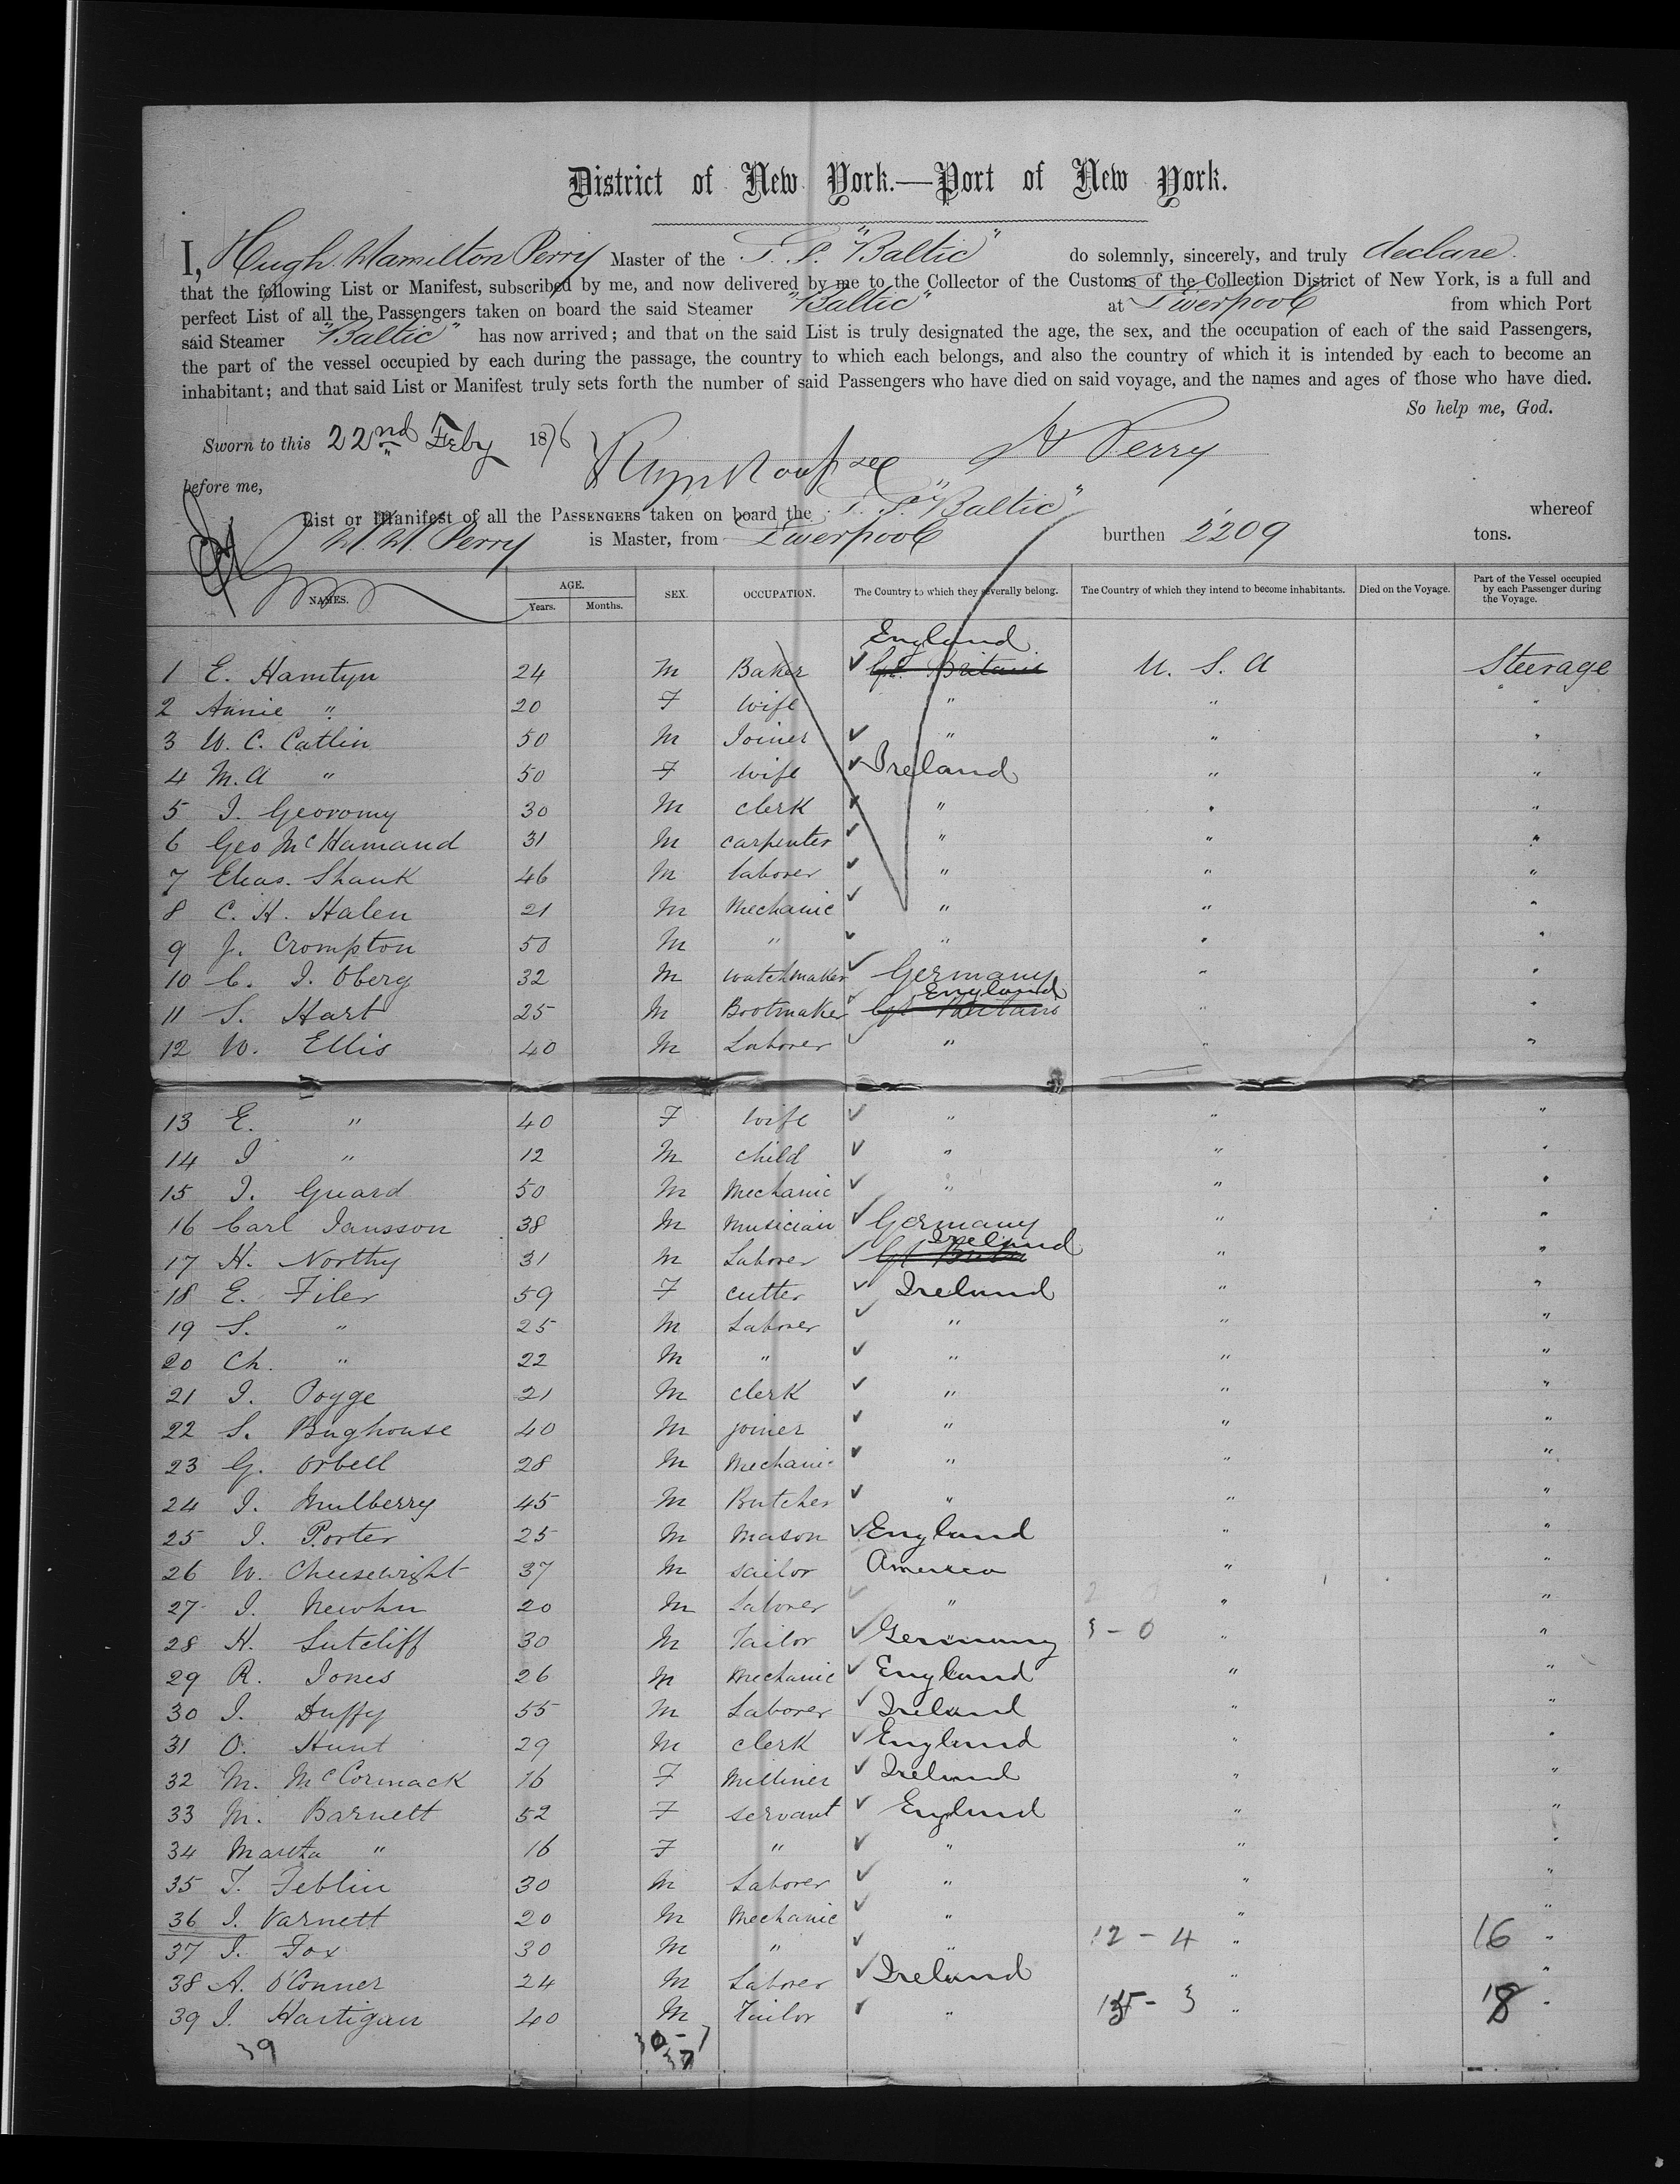 District of New York.—Port of New York.
I, Hugh Hamilton Perry Master of the S. S. "Baltic" do solemnly, sincerely, and truly declare.
that the following List or Manifest, subscribed by me, and now delivered by me to the Collector of the Customs of the Collection District of New York, is a full and
perfect List of all the Passengers taken on board the said Steamer "Baltic" at Liverpool from which Port
said Steamer "Baltic" has now arrived; and that on the said List is truly designated the age, the sex, and the occupation of each of the said Passengers,
the part of the vessel occupied by each during the passage, the country to which each belongs, and also the country of which it is intended by each to become an
inhabitant; and that said List or Manifest truly sets forth the number of said Passengers who have died on said voyage, and the names and ages of those who have died.
So help me, God.
Sworn to this 22nd Feby 1876 H Perry
before me,
List or Manifest of all the PASSENGERS taken on board the S. S. "Baltic" whereof
H. H. Perry is Master, from Liverpool burthen 2209 tons.
NAMES. AGE. Years. Months. SEX. OCCUPATION. The Country to which they severally belong. The Country of which they intend to become inhabitants. Died on the Voyage. Part of the Vessel occupied by each Passenger during the Voyage.
England
1 E. Hamtyn 24 M Baker ✓ Gt. Britain U. S. A Steerage
2 Annie " 20 F Wife " " "
3 W. C. Catlin 50 M Joiner ✓ " " "
4 M. A " 50 F Wife ✓ Ireland " "
5 I. Geovomy 30 M clerk ✓ " " "
6 Geo McHamand 31 M carpenter ✓ " " "
7 Elias. Shank 46 M laborer ✓ " " "
8 C. H. Halen 21 M Mechanic ✓ " " "
9 J. Crompton 50 M " ✓ " " "
10 C. I. Oberg 32 M watchmaker ✓ Germany " "
England
11 S. Hart 25 M Bootmaker ✓ Gt Britain " "
12 W. Ellis 40 M Laborer ✓ " " "
13 E. " 40 F Wife ✓ " " "
14 I " 12 M child ✓ " " "
15 I. Guard 50 M Mechanic ✓ " " "
16 Carl Jansson 38 M Musician ✓ Germany " "
Ireland
17 H. Northy 31 M Laborer ✓ Gt Britain " "
18 E. Filer 59 F cutter ✓ Ireland " "
19 S. " 25 M Laborer ✓ " " "
20 Ch. " 22 M " ✓ " " "
21 I. Pogge 21 M clerk ✓ " " "
22 S. Bughouse 40 M joiner ✓ " " "
23 G. Orbell 28 M Mechanic ✓ " " "
24 I. Mulberry 45 M Butcher ✓ " " "
25 I. Porter 25 M Mason ✓ England " "
26 W. Cheesewright 37 M sailor America " "
27 I. Newhn 20 M Laborer ✓ " " "
28 H. Sutcliff 30 M Tailor ✓ Germany 3 - 0 " "
29 R. Jones 26 M Mechanic ✓ England " "
30 I. Duffy 55 M Laborer ✓ Ireland " "
31 O. Hunt 29 M clerk ✓ England " "
32 M. McCormack 16 F Milliner ✓ Ireland " "
33 M. Barnett 52 F servant ✓ England " "
34 Martha " 16 F " ✓ " " "
35 T. Teblin 30 M Laborer ✓ " " "
36 I. Varnett 20 M Mechanic ✓ " " "
37 I. Fox 30 M " ✓ " 12 - 4 " 16 "
38 A. O'Conner 24 M Laborer ✓ Ireland " "
39 I. Hartigan 40 M Tailor ✓ " 15 - 3 " 18 "
39 30 - 7
37